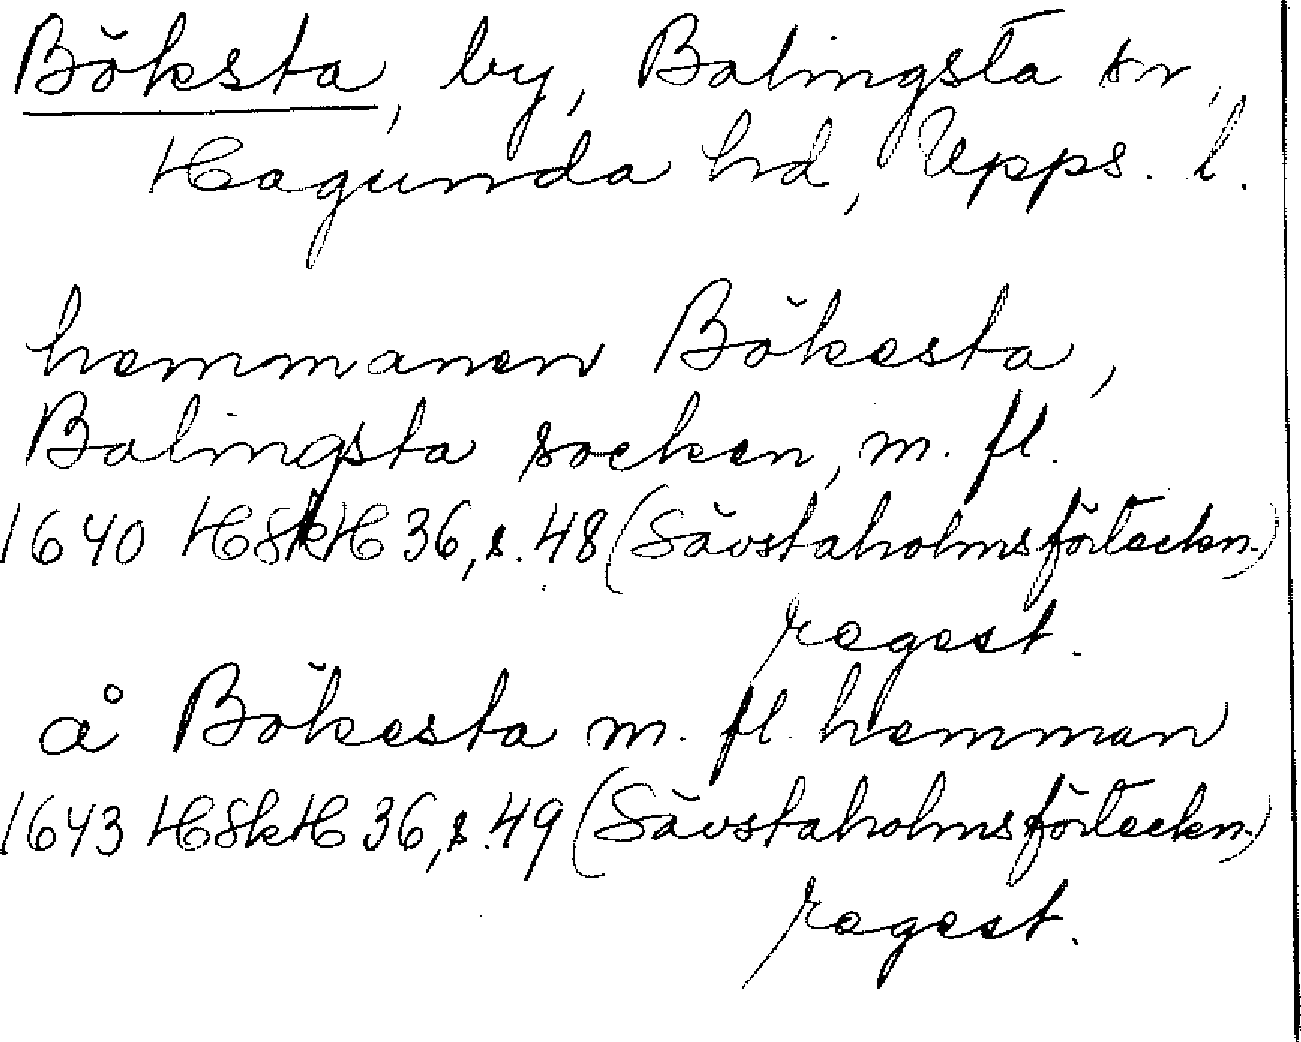 Böksta, by, Balingsta sn,
Hagunda hd, Upps. l.
hemmanen Bökesta,
Balingsta socken, m. fl.
1640 HSkH 36, s. 48 (Sävstaholmsförteckn.)
regest.
å Bökesta m. fl. hemman
1643 HSkH 36, s. 49 (Sävstaholmsförteckn.)
regest.